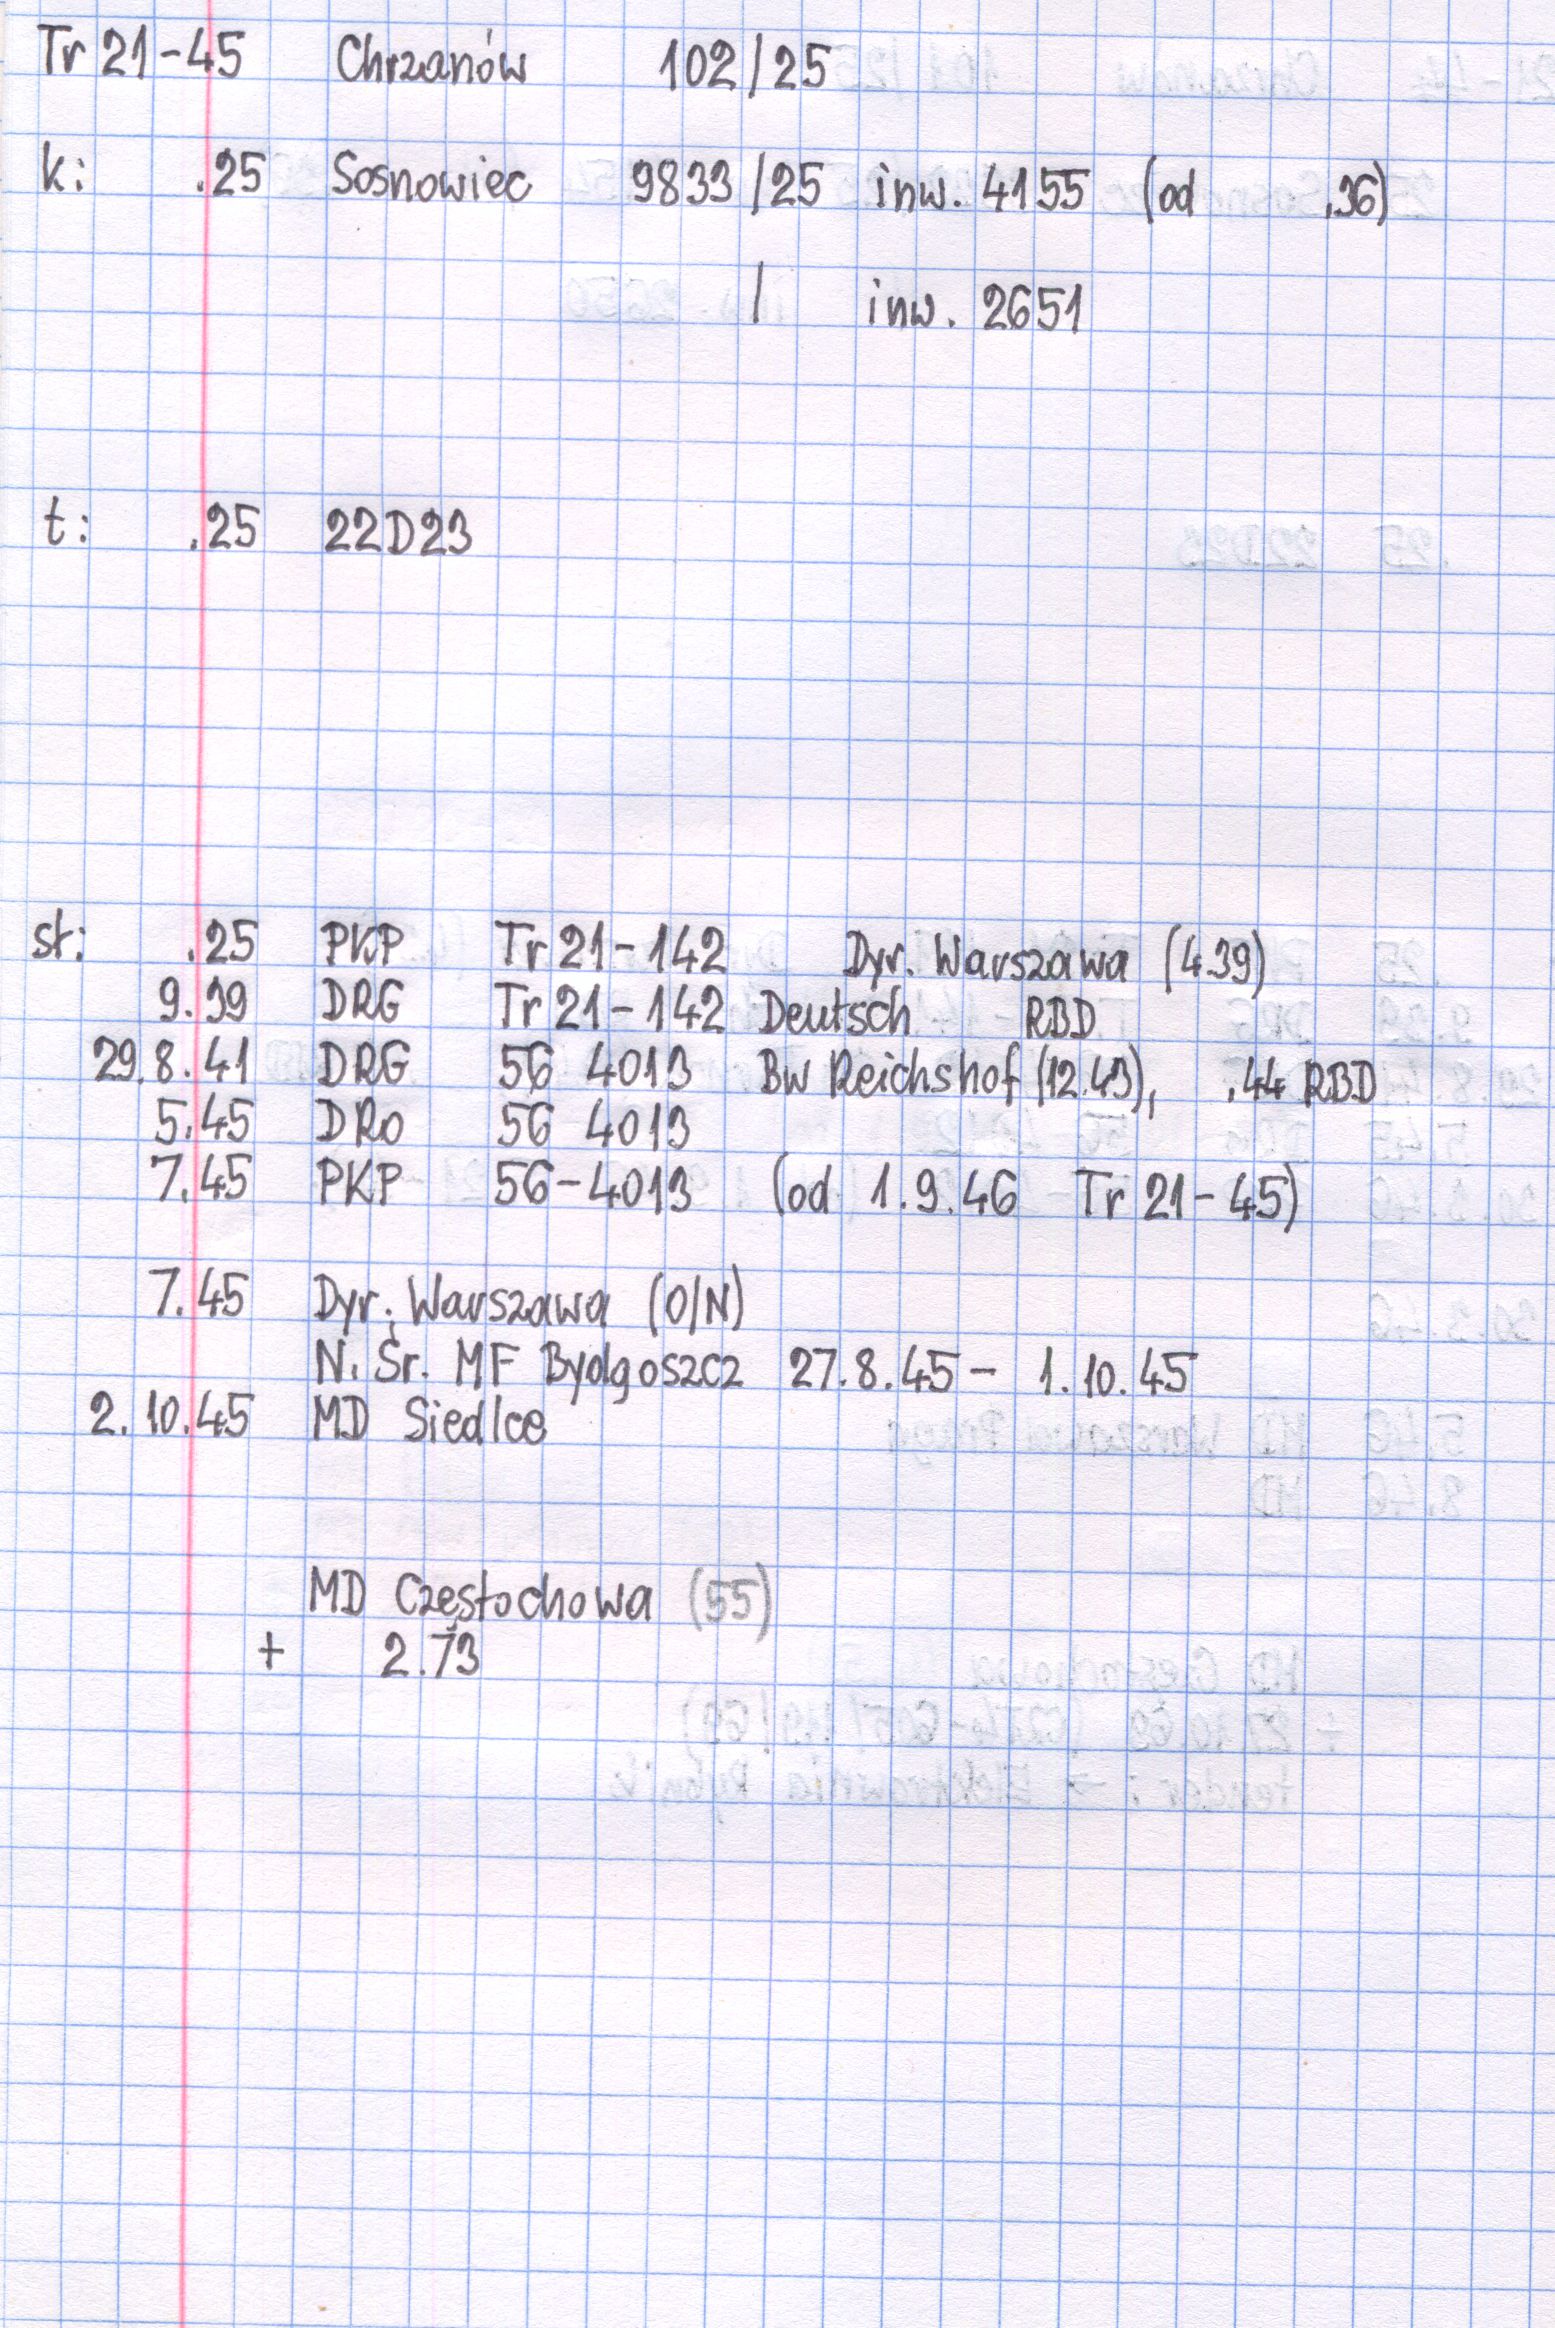 Tr 21-45 Chrzanów 102/25
k: .25 Sosnowiec 9833/25 inw. 4155 (od .36)
/ inw. 2651
t: .25 22D23
st: .25 PKP Tr 21-142 Dyr. Warszawa (4.39)
9.39 DRG Tr 21-142 Deutsch RBD
29.8.41 DRG 56 4013 BW Reichshof (12.43), .44 RBD
5.45 DRo 56 4013
7.45 PKP 56-4013 (od 1.9.46 Tr 21-45)
7.45 Dyr. Warszawa (O/N)
N. Śr. MF Bydgoszcz 27.8.45 - 1.10.45
2.10.45 MD Siedlce
MD Częstochowa (55)
+ 2.73